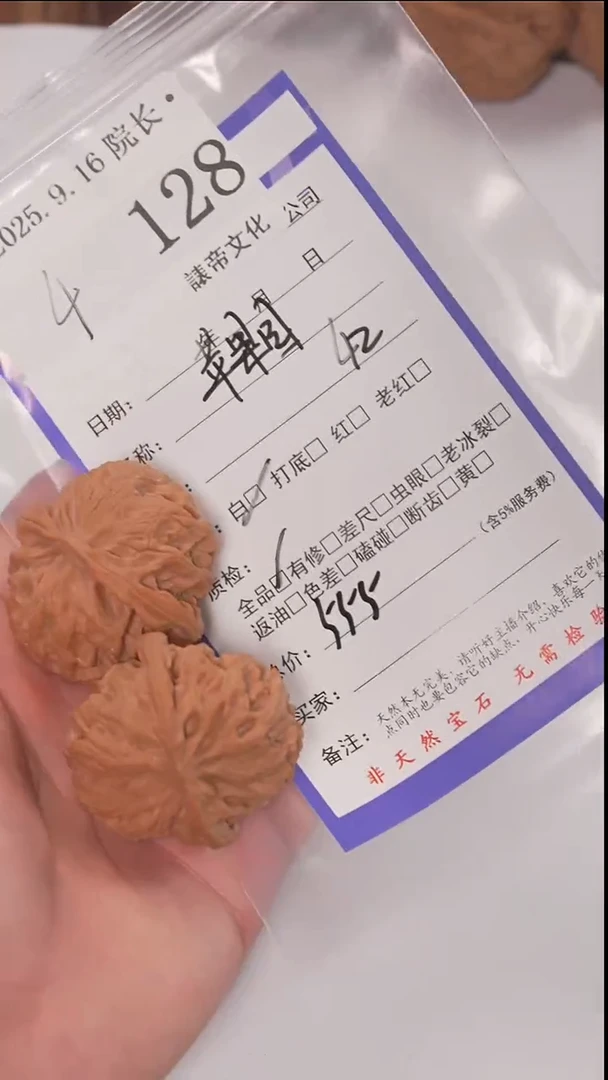 2025.9.16院长·
128
4
諘帝文化 公司
日期： 年 月 日
称：
42
：白☑ 打底□ 红□ 老红□
质检：
全品☑有修□差尺□虫眼□老冰裂□
返油□色差□磕碰□断齿□黄□
总价： 555 (含5%服务费)
买家：
备注：
天然本无完美，请听好主播介绍，喜欢它的
点同时也要包容它的缺点，开心快乐每一
非天然宝石 无需检验